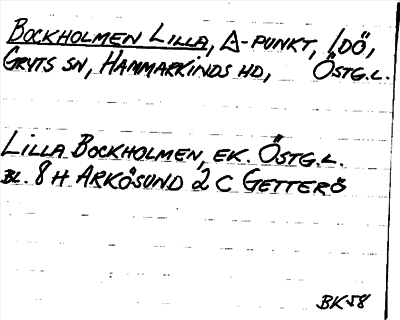 BOCKHOLMEN LILLA, △-PUNKT, IDÖ,
GRYTS SN, HAMMARKINDS HD, ÖSTG.L.
LILLA BOCKHOLMEN, EK. ÖSTG.L.
BL. 8 H ARKÖSUND 2 C GETTERÖ
BK58